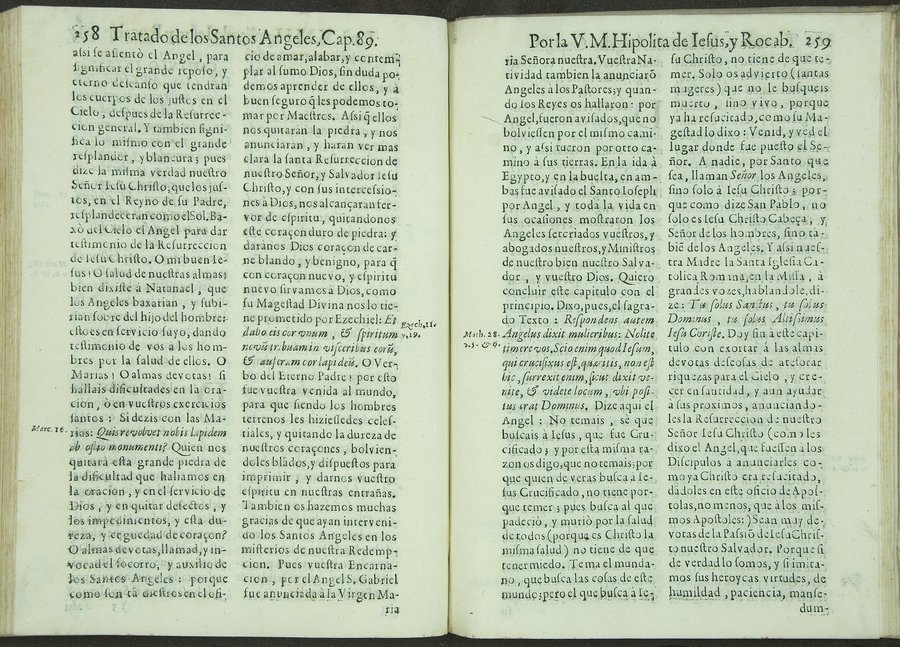 258 Tratado de los Santos Angeles, Cap. 89.
assi se assentò el Angel, para
significar el grande reposo, y
eterno descanso que tendràn
los cuerpos de los justos en el
Cielo, despues de la Resurrec-
cion general. Y tambien signi-
fica lo mismo con el grande
resplandor, y blancura; pues
dize la misma verdad nuestro
Señor Iesu Christo, que los jus-
tos, en el Reyno de su Padre,
resplandeceràn como el Sol. Ba-
xò del Cielo el Angel para dar
testimonio de la Resurreccion
de Iesu Christo. O mi buen Ie-
sus! O salud de nuestras almas!
bien dixiste à Natanael, que
los Angeles baxarian, y subi-
rian sobre del hijo del hombre:
esto es en servicio suyo, dando
testimonio de vos a los hom-
bres por la salud de ellos. O
Marias! O almas devotas! si
hallais dificultades en la ora-
cion, ò en vuestros exercicios
santos: Si dezis con las Ma-
Marc. 16. rias: Quis revolvet nobis lapidem
ab ostio monumenti? Quien nos
quitarà esta grande piedra de
la dificultad que hallamos en
la oracion, y en el servicio de
Dios, y en quitar defectos, y
los impedimentos, y esta du-
reza, y ceguedad de coraçon?
O almas devotas, llamad, y in-
vocad el socorro, y auxilio de
los Santos Angeles: porque
como son tã diestros en el ofi-
cio de amar, alabar, y contem-
plar al sumo Dios, sin duda po-
demos aprender de ellos, y à
buen seguro q̃ les podemos to-
mar por Maestres. Assi q̃ ellos
nos quitaràn la piedra, y nos
anunciaràn, y haràn ver mas
clara la santa Resurreccion de
nuestro Señor, y Salvador Iesu
Christo, y con sus intercessio-
nes à Dios, nos alcançaràn fer-
vor de espiritu, quitandonos
este coraçon duro de piedra: y
daranos Dios coraçon de car-
ne blando, y benigno, para q̃
con coraçon nuevo, y espiritu
nuevo sirvamos à Dios, como
su Magestad Divina nos lo tie-
ne prometido por Ezechiel: Et
Ezech. 11. dabo eis cor unum, & spiritum
v. 19. novũ tribuam in visceribus eorũ,
& auferam cor lapideũ. O Ver-
bo del Eterno Padre! por esto
fue vuestra venida al mundo,
para que siendo los hombres
terrenos les hiziessedes celes-
tiales, y quitando la dureza de
nuestros coraçones, bolvien-
doles blãdos, y dispuestos para
imprimir, y darnos vuestro
espiritu en nuestras entrañas.
Tambien os hazemos muchas
gracias de que ayan interveni-
do los Santos Angeles en los
misterios de nuestra Redemp-
cion. Pues vuestra Encarna-
cion, por el Angel S. Gabriel
fue anunciada à la Virgen Ma-
ria
Por la V. M. Hipolita de Iesus, y Rocab. 259
ria Señora nuestra. Vuestra Na-
tividad tambien la anunciarõ
Angeles à los Pastores; y quan-
do los Reyes os hallaron: por
Angel, fueron avisados, que no
bolviessen por el mismo cami-
no, y assi fueron por otro ca-
mino à sus tierras. En la ida à
Egypto, y en la buelta, en am-
bas fue avisado el Santo Ioseph
por Angel, y toda la vida en
sus ocasiones mostraron los
Angeles ser criados vuestros, y
abogados nuestros, y Ministros
de nuestro bien nuestro Salva-
dor, y vuestro Dios. Quiero
concluir este capitulo con el
principio. Dixo, pues, el sagra-
do Texto: Respondens autem
Math. 28. Angelus dixit mulieribus: Nolite
v. 5. & 6. timere vos, Scio enim quod Iesum,
qui crucifixus est, quæritis, non est
hic, surrexit enim, sicut dixit ve-
nite, & videte locum, vbi posi-
tus erat Dominus. Dize aqui el
Angel: No temais, sè que
buscais à Iesus, que fue Cru-
cificado; y por esta misma ra-
zon os digo, que no temais; por
que quien de veras busca a Ie-
sus Crucificado, no tiene por-
que temer; pues busca al que
padeciò, y muriò por la salud
de todos (porque es Christo la
misma salud) no tiene de que
tener miedo. Tema el munda-
no, que busca las cosas de este
mundo; pero el que busca à Ie-
su Christo, no tiene de que te-
mer. Solo os advierto (santas
mugeres) que no le busqueis
muerto, sino vivo, porque
ya ha resucitado, como su Ma-
gestad lo dixo: Venid, y ved el
lugar donde fue puesto el Se-
ñor. A nadie, por Santo que
sea, llaman Señor los Angeles,
sino solo à Iesu Christo; por-
que como dize San Pablo, no
solo es Iesu Christo Cabeça, y
Señor de los hombres, sino ta-
biẽ de los Angeles. Y assi nues-
tra Madre la Santa Iglesia Ca-
tolica Romana, en la Missa, à
grandes vozes, hablandole, di-
ze: Tu solus Sanctus, tu solus
Dominus, tu solus Altissimus
Iesu Christe. Doy fin à este capi-
tulo con exortar à las almas
devotas deseosas de atesorar
riquezas para el Cielo, y cre-
cer en santidad, y aun ayudar
à sus proximos, anunciando-
les la Resurreccion de nuestro
Señor Iesu Christo (como les
dixo el Angel, que fuessen à los
Discipulos à anunciarles co-
mo ya Christo era resucitado,
dãdoles en este; oficio de Apos-
tolas, no menos, que à los mis-
mos Apostoles:) Sean muy de-
votas de la Passiõ de Iesu Chris-
to nuestro Salvador. Porque si
de verdad lo somos, y si imita-
mos sus heroycas virtudes, de
humildad, paciencia, manse-
dum-